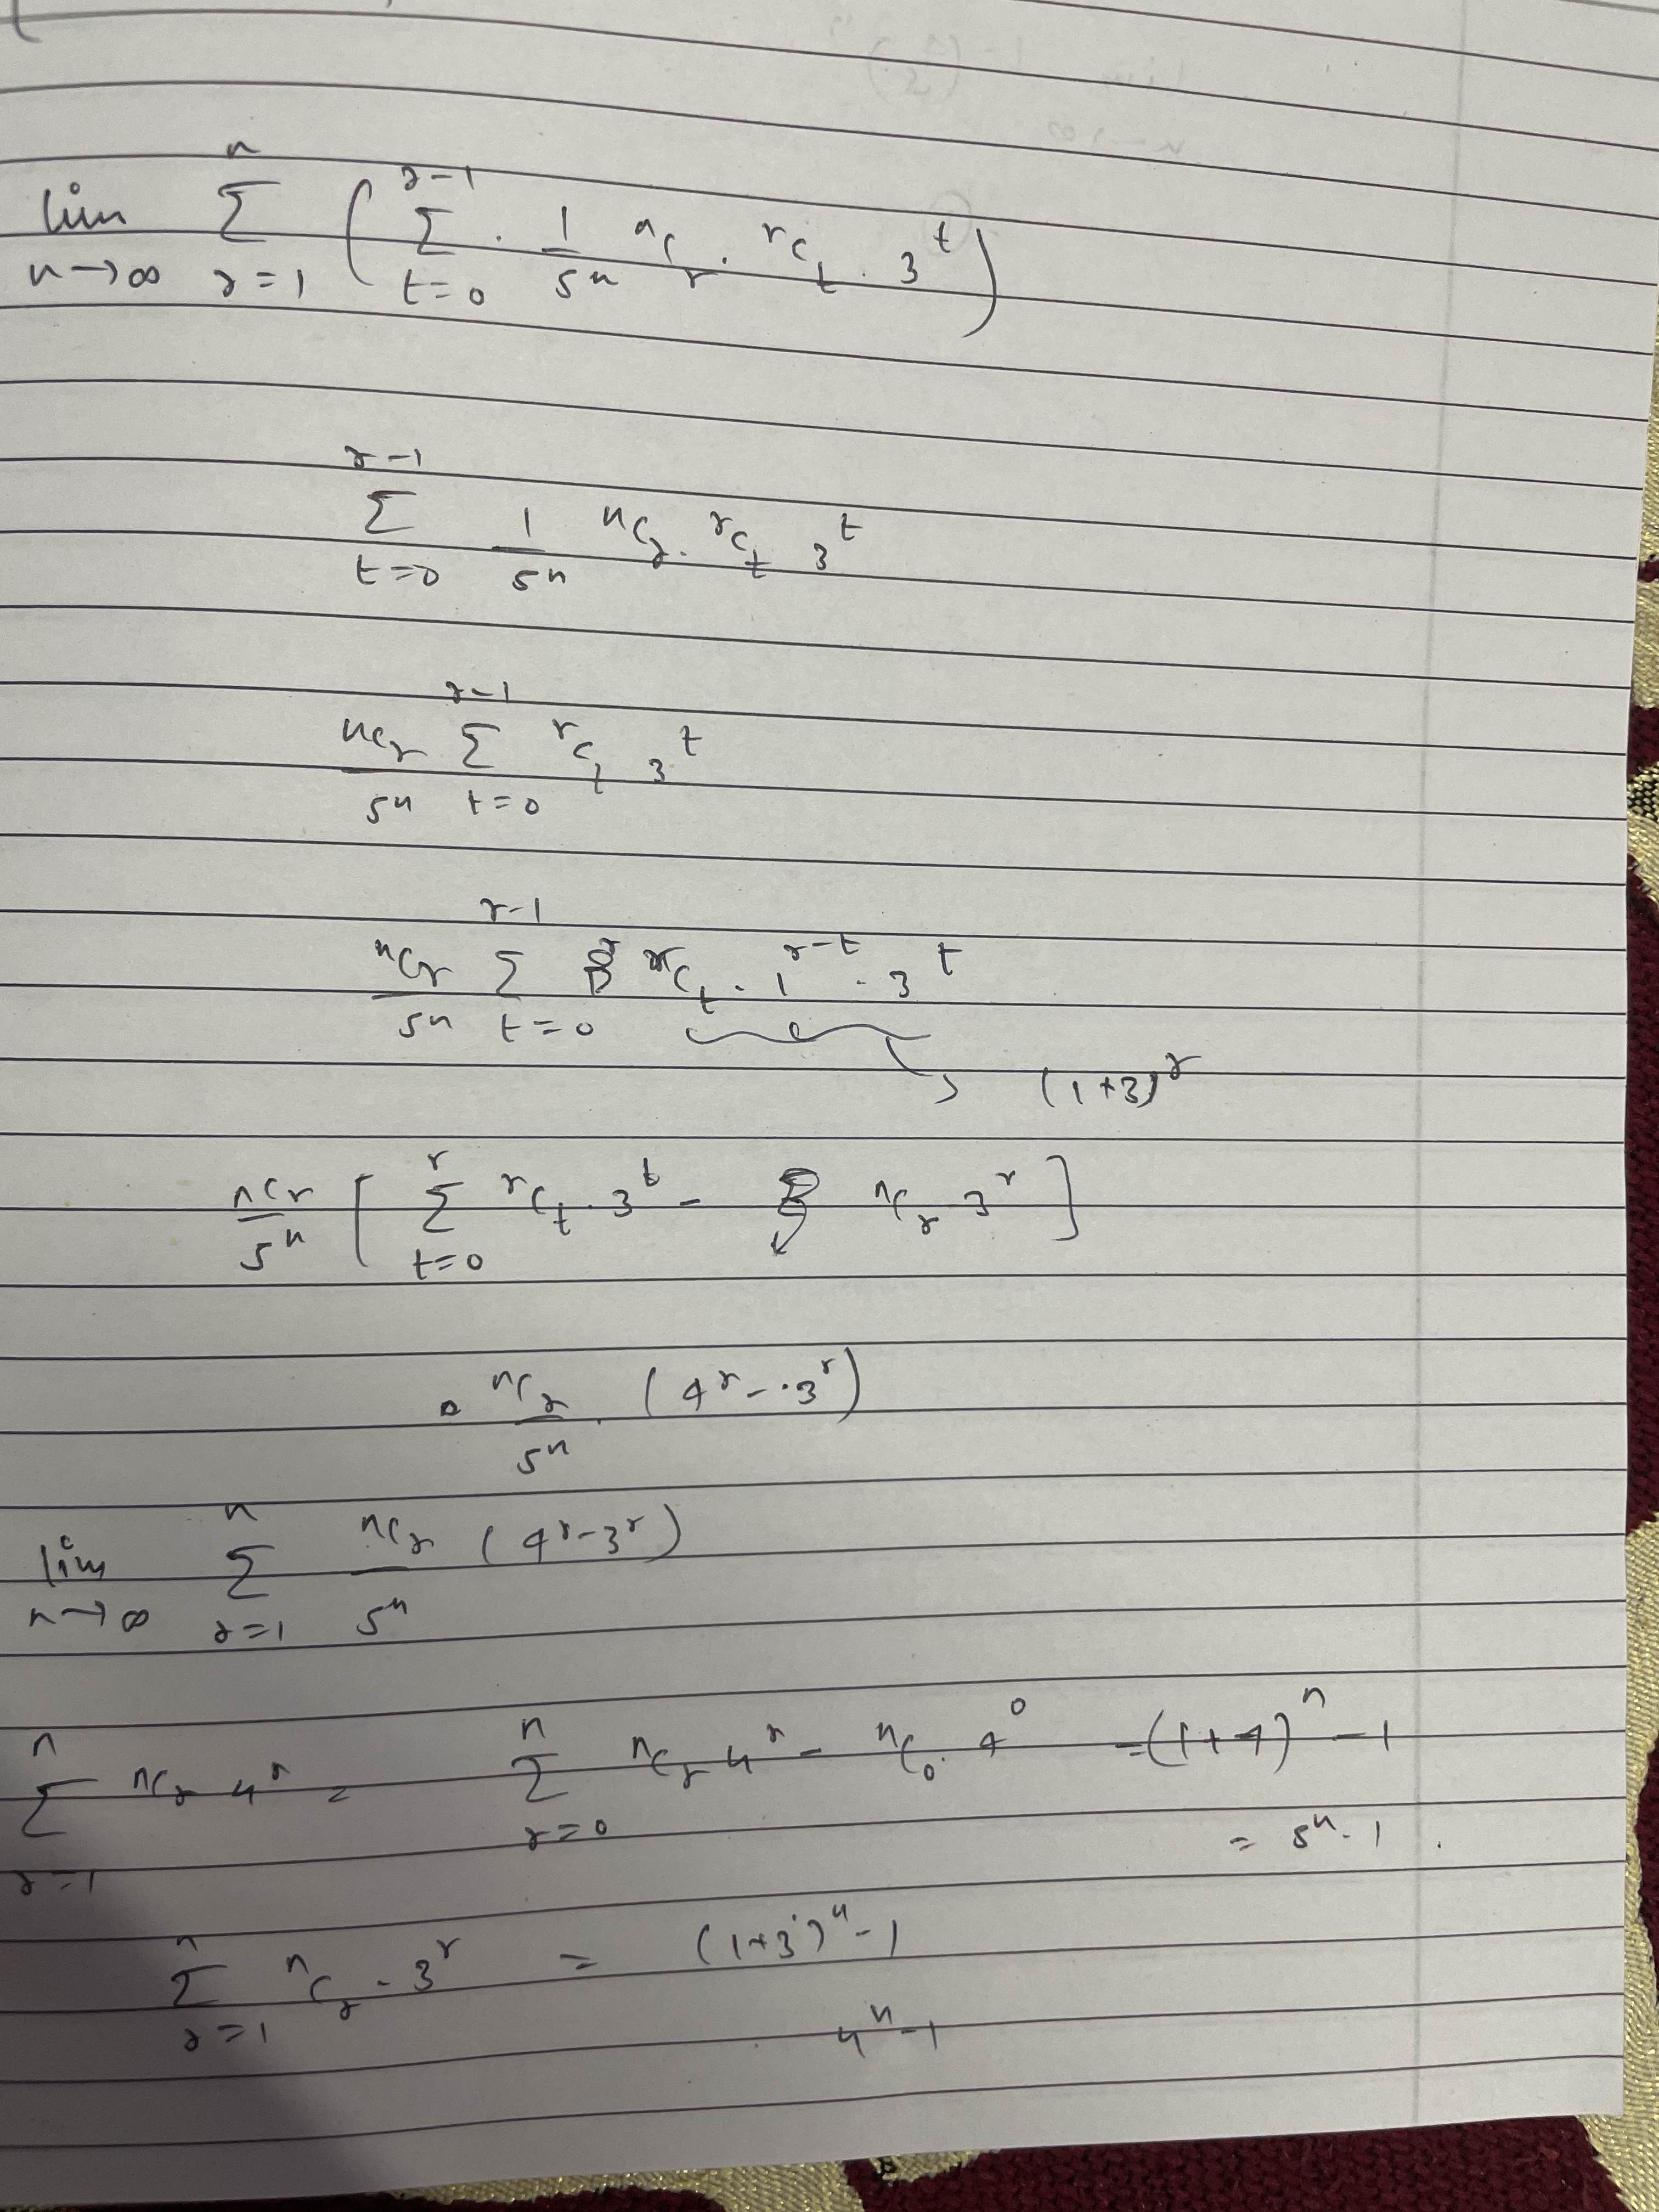 lim n→∞ Σ_{r=1}^{n} ( Σ_{t=0}^{r-1} · 1/5ⁿ ⁿC_r · ʳC_t · 3^t )
Σ_{t=0}^{r-1} 1/5ⁿ ⁿC_r · ʳC_t 3^t
ⁿC_r/5ⁿ Σ_{t=0}^{r-1} ʳC_t 3^t
ⁿC_r/5ⁿ Σ_{t=0}^{r-1} ʳC_t · 1^{r-t} · 3^t
→ (1+3)^r
ⁿC_r/5ⁿ [ Σ_{t=0}^{r} ʳC_t · 3^t - ⁿC_r 3^r ]
ⁿC_r/5ⁿ · (4^r - ·3^r)
lim n→∞ Σ_{r=1}^{n} ⁿC_r/5ⁿ (4^r - 3^r)
Σ_{r=1}^{n} ⁿC_r 4^r = Σ_{r=0}^{n} ⁿC_r 4^r - ⁿC_0 · 4^0 = (1+4)^n - 1
= 5ⁿ - 1 .
Σ_{r=1}^{n} ⁿC_r - 3^r = (1+3)^n - 1
4ⁿ - 1